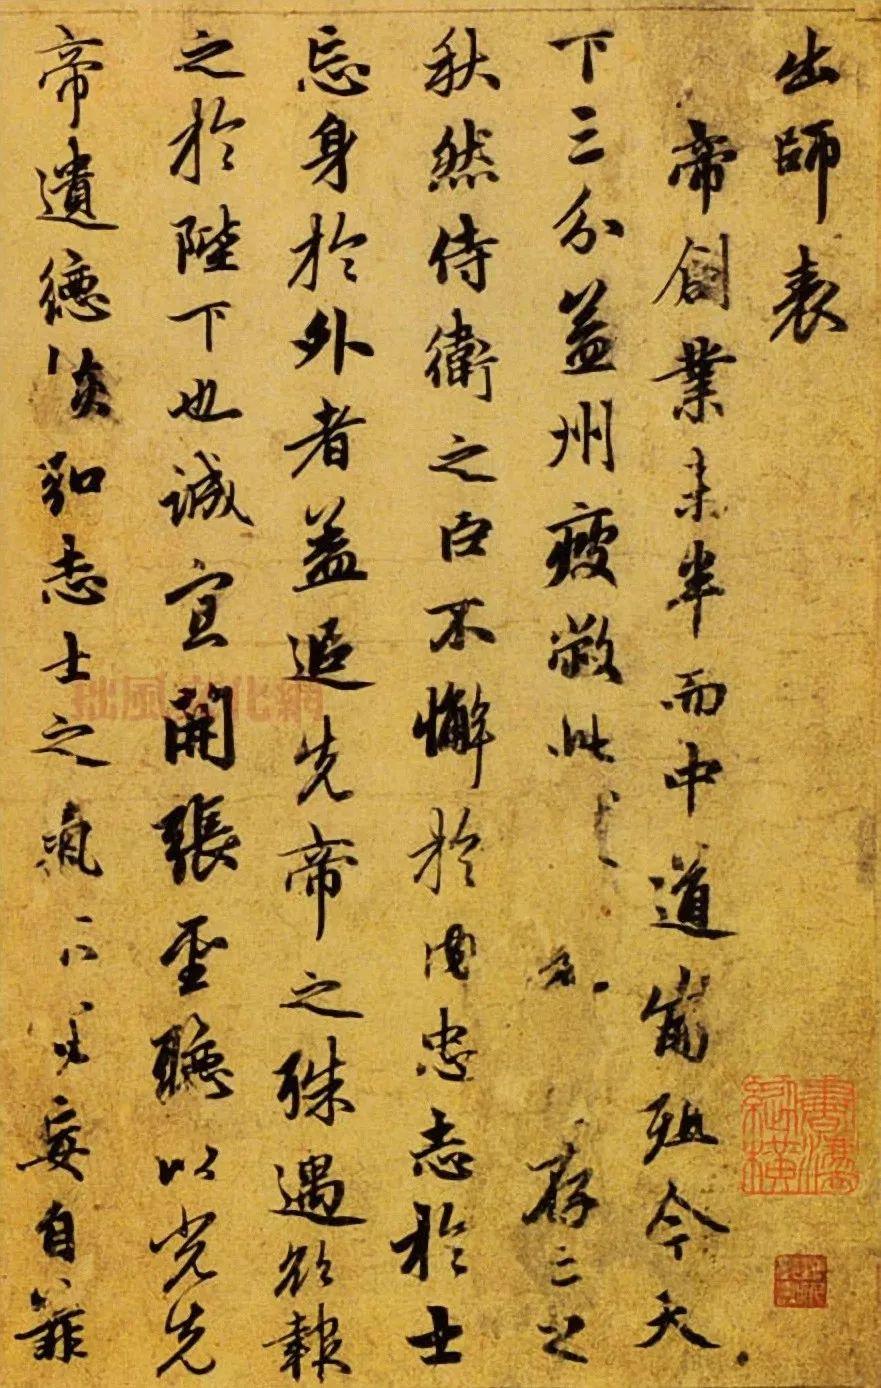 出師表
帝創業未半而中道崩殂今天
下三分益州疲敝此存亡之
秋然侍衛之臣不懈於內忠志於士
忘身於外者蓋追先帝之殊遇欲報
之於陛下也誠宜開張聖聽以光先
帝遺德恢弘志士之氣不妄自菲
拙風文化網